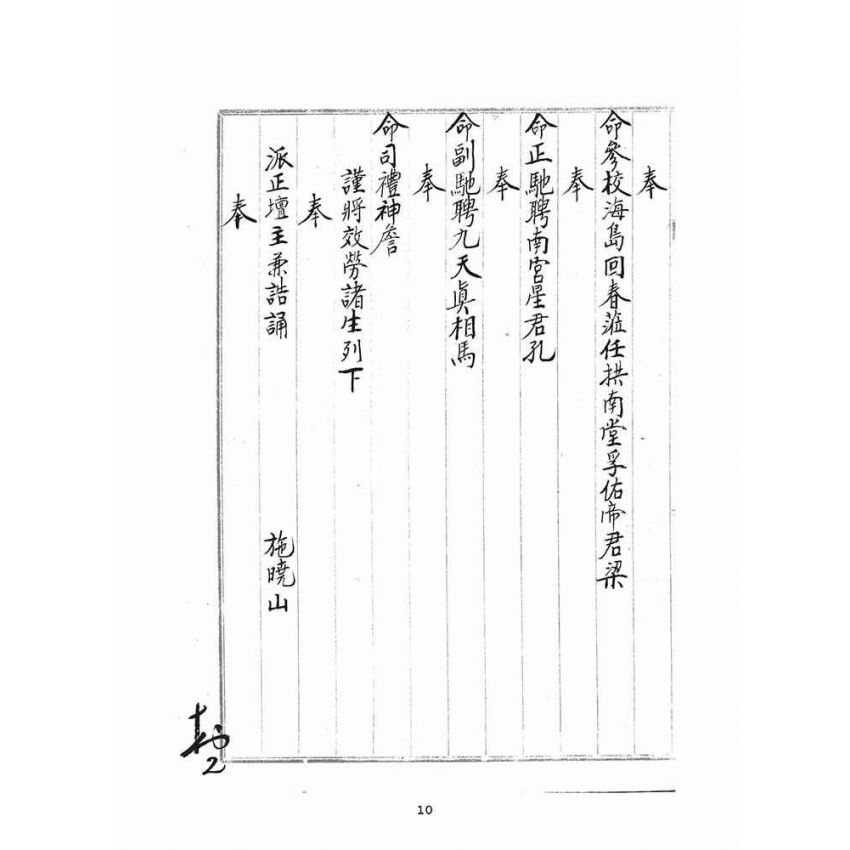 奉
命參校海島回春蒞任拱南堂孚佑帝君梁
奉
命正馳聘南宮星君孔
奉
命副馳聘九天真相馬
奉
命司禮神詹
謹將效勞諸生列下
奉
派正壇主兼誥誦 施曉山
奉
2
10